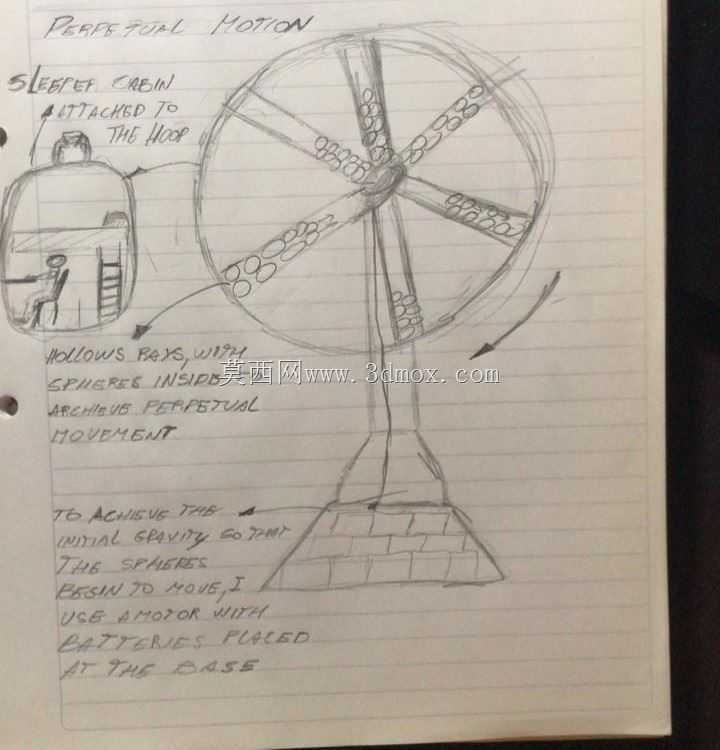 PERPETUAL MOTION
SLEEPER CABIN
ATTACHED TO
THE HOOP
HOLLOWS RAYS, WITH
SPHERES INSIDE TO
ARCHIEVE PERPETUAL
MOVEMENT
莫西网www.3dmox.com
TO ACHIEVE THE
INITIAL GRAVITY SO THAT
THE SPHERES
BEGIN TO MOVE, I
USE A MOTOR WITH
BATTERIES PLACED
AT THE BASE